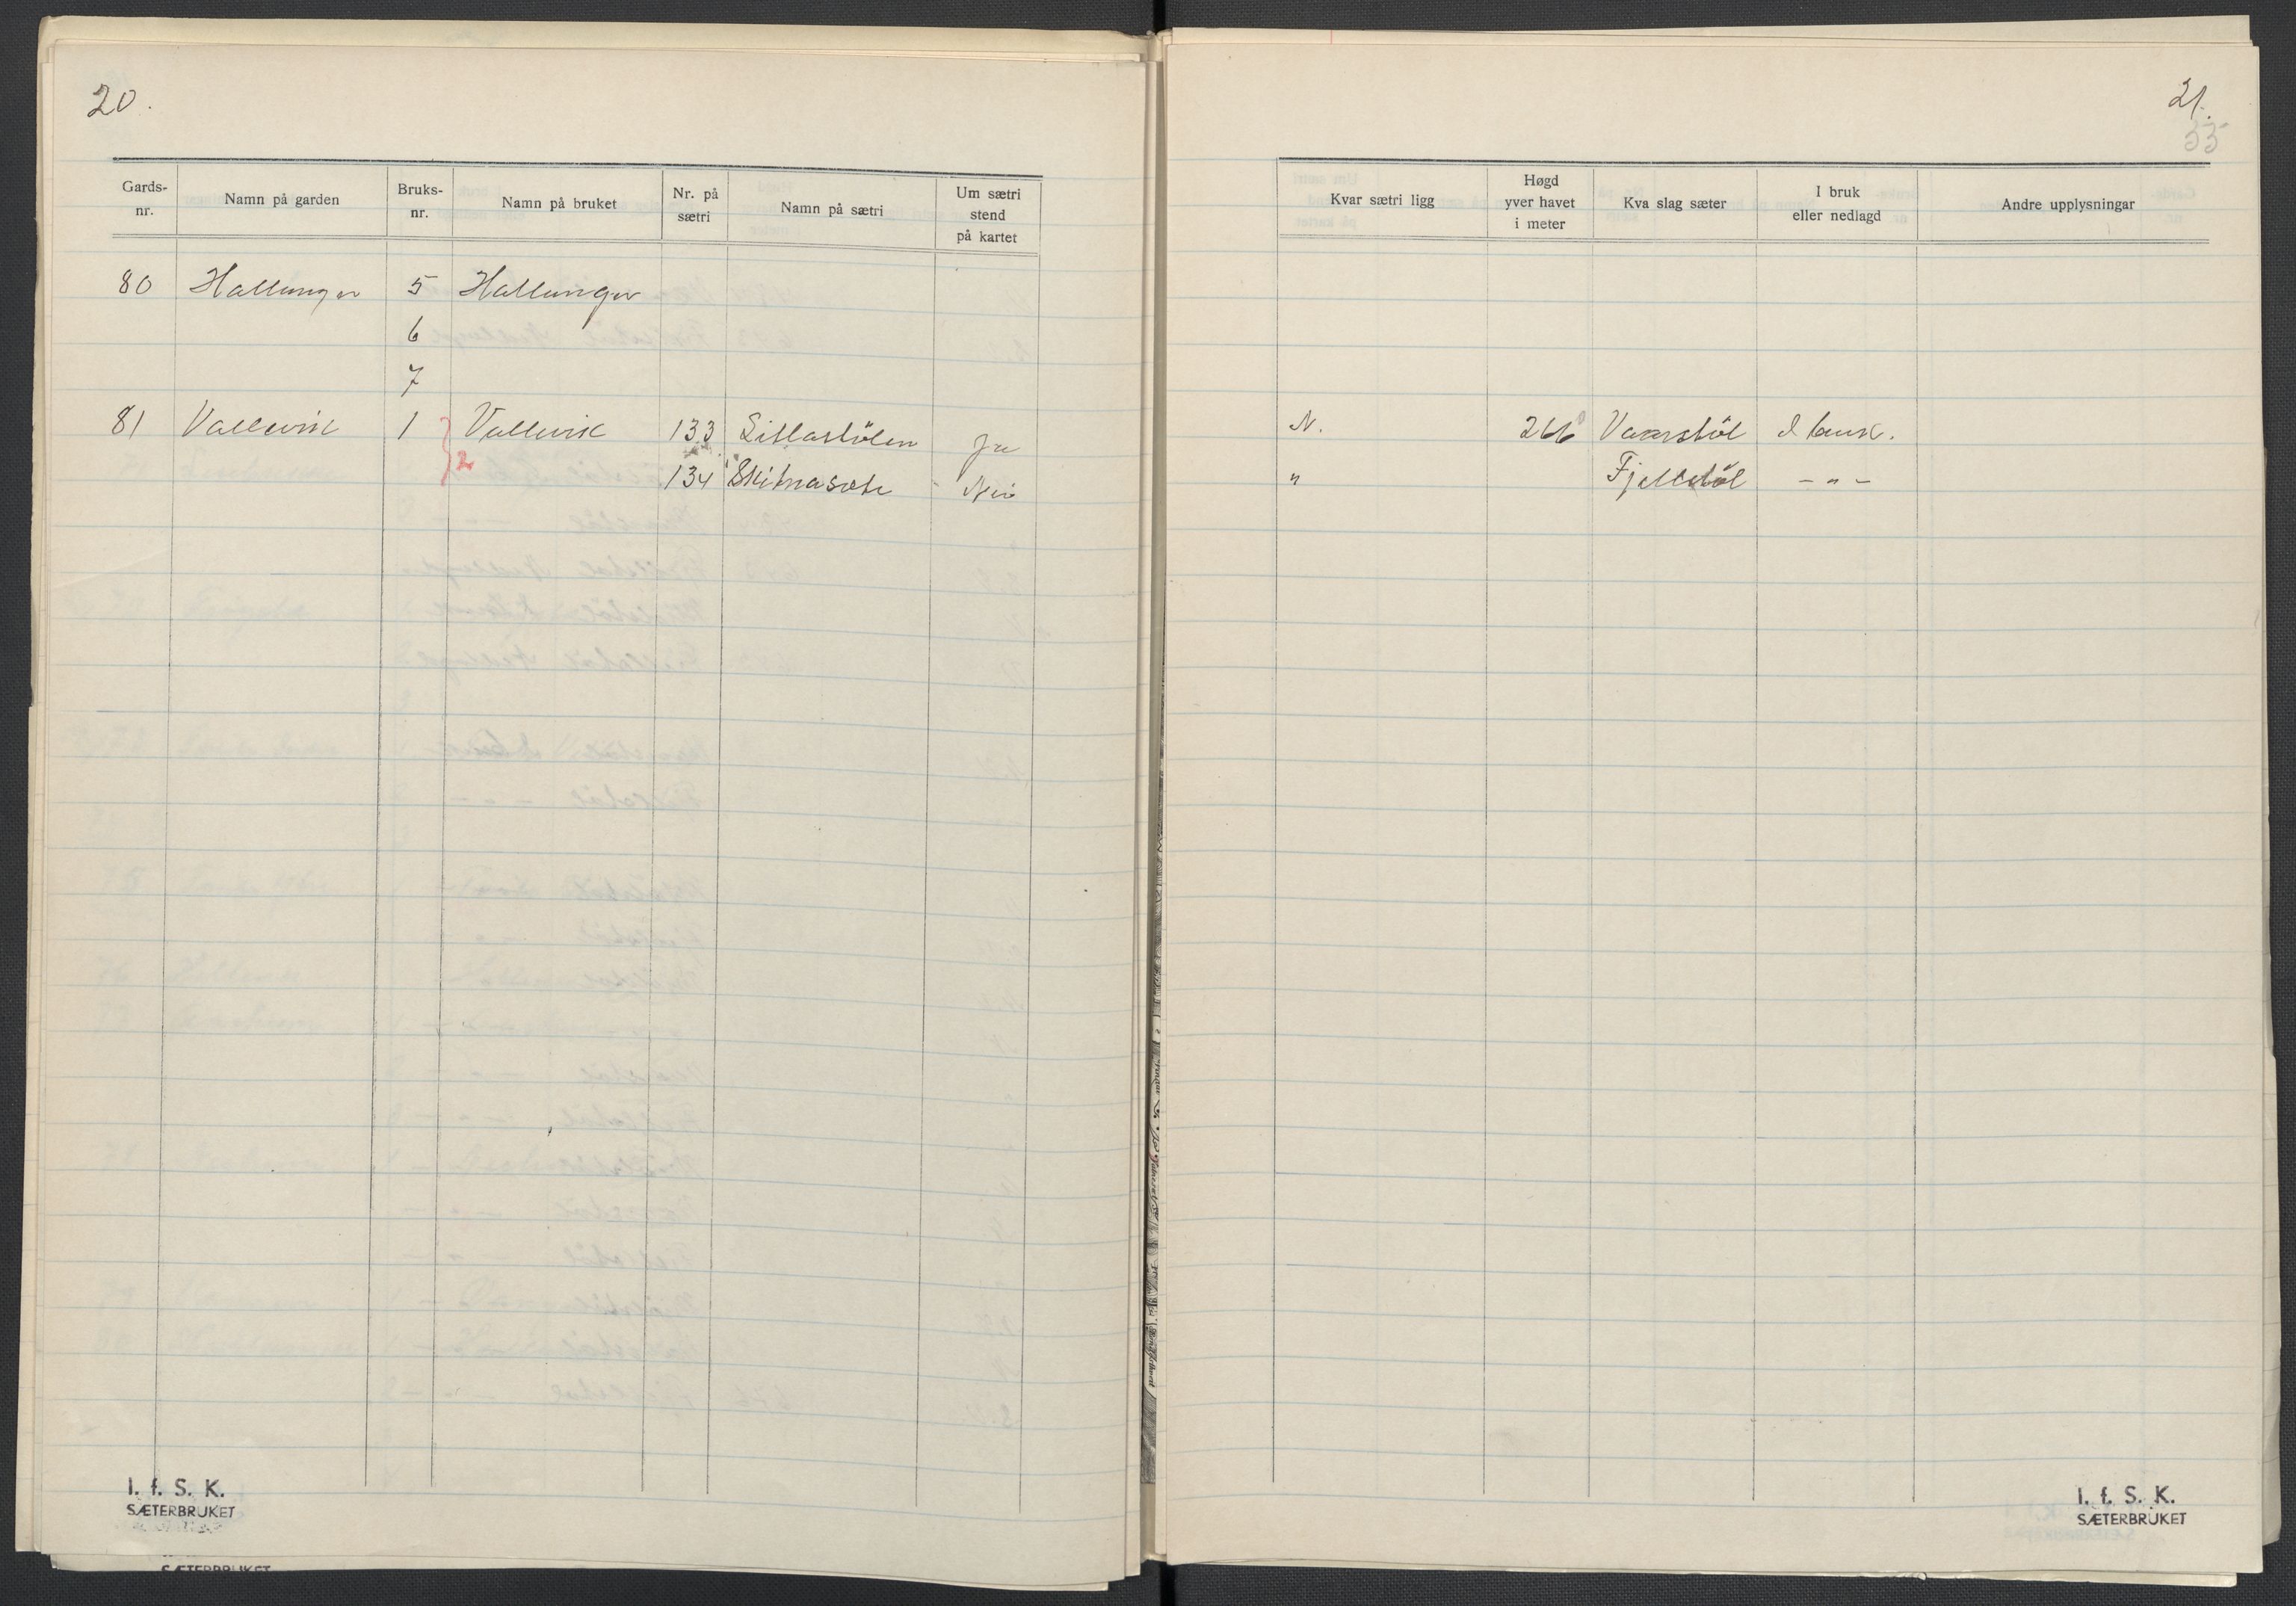 20.
Gards-nr. Namn på garden Bruks-nr. Namn på bruket Nr. på sætri Namn på sætri Um sætri stend på kartet
80 Hallanger 5 Hallanger
6
7
81 Vallevik 1 Vallevik 133 Litlastölen Ja
2 134 Skitnasete Nei
I. f. S. K.
SÆTERBRUKET
21.
33
Kvar sætri ligg Høgd yver havet i meter Kva slag sæter I bruk eller nedlagd Andre upplysningar
N. 266 Vaarstöl I bruk.
" Fjellstöl - " -
I. f. S. K.
SÆTERBRUKET